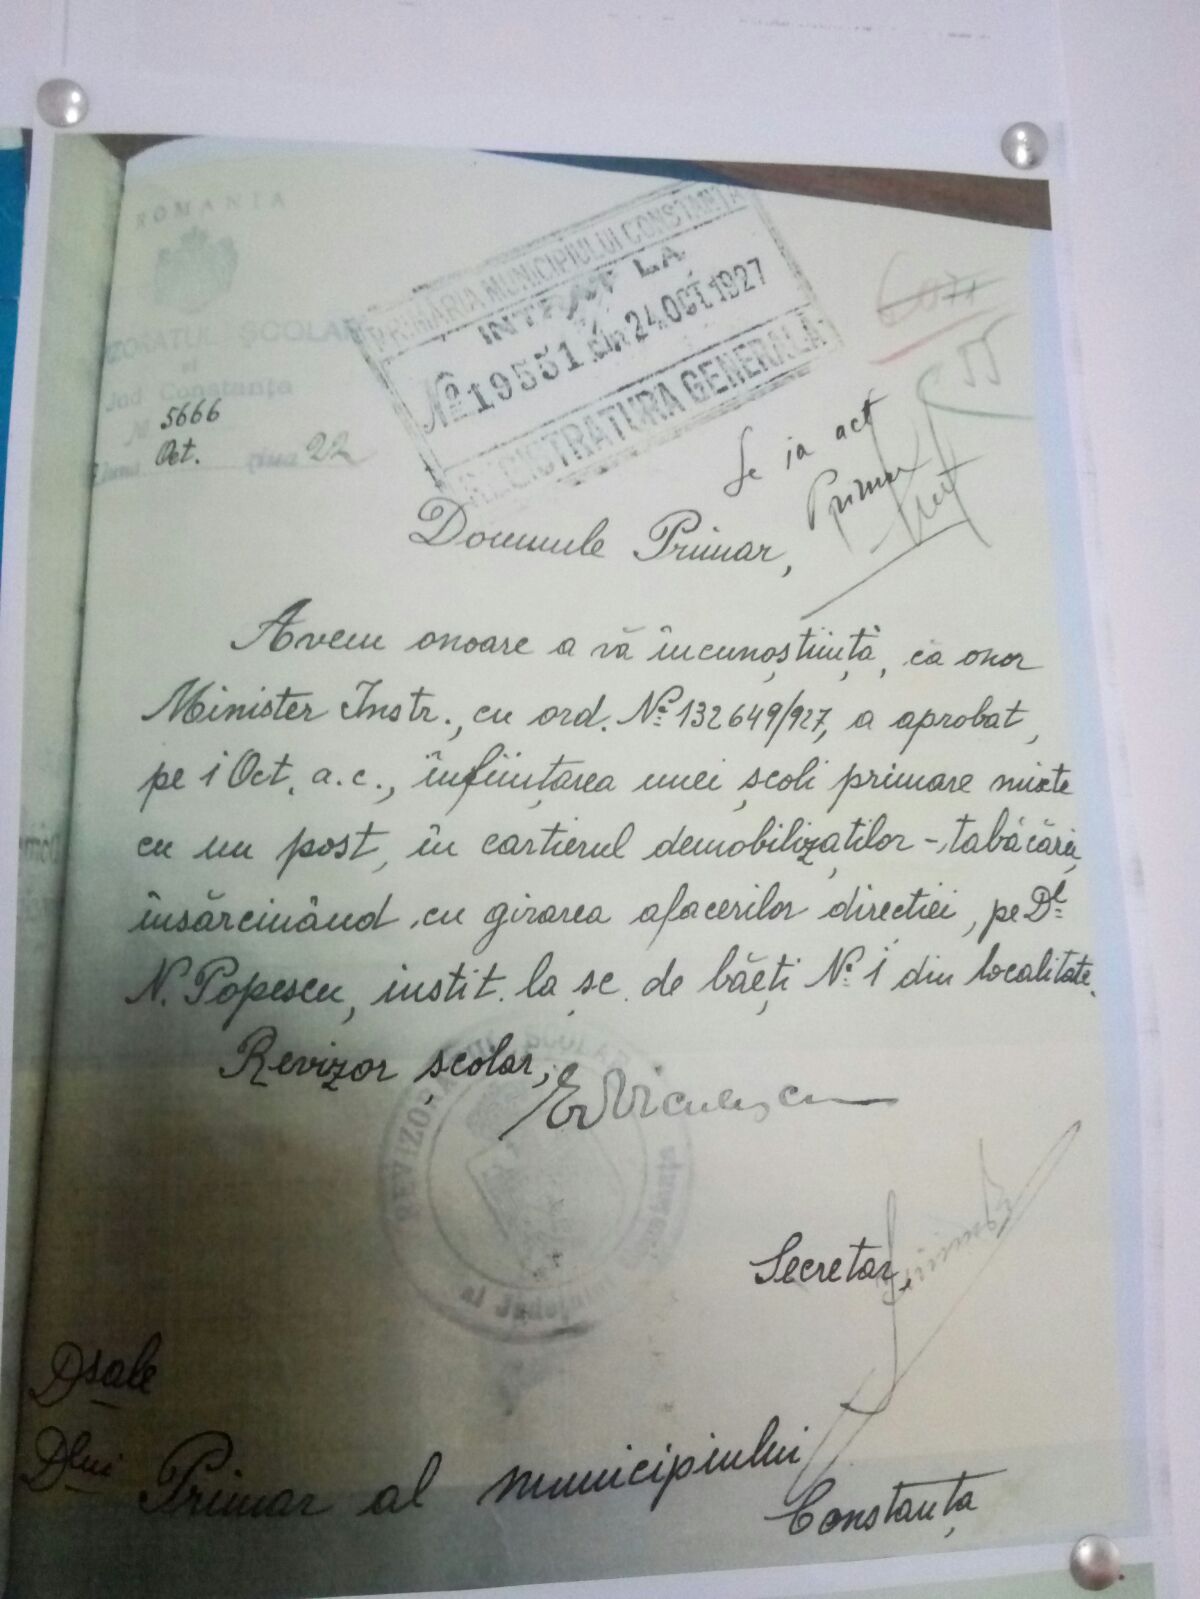 ROMANIA
ȘCOLAR
Jud Constanța
№ 5666
Oct. 22
PRIMĂRIA MUNICIPIULUI CONSTANȚA
INTRAT LA
№ 19551 din 24 OCT 1927
REGISTRATURA GENERALĂ
Se ia act
Primar
Domnule Primar,
Avem onoare a vă încunoștiința, că onor
Minister Instr., cu ord. No. 132649/927, a aprobat,
pe 1 Oct. a.c., înființarea unei școli primare mixte
cu un post, în cartierul demobilizaților - tabăcării,
însărcinând cu girarea afacerilor direcției, pe Dl
N. Popescu, instit. la șc. de băeți No. 1 din localitate.
Revizor școlar,
Secretar,
Dsale
Dlui Primar al municipiului
Constanța